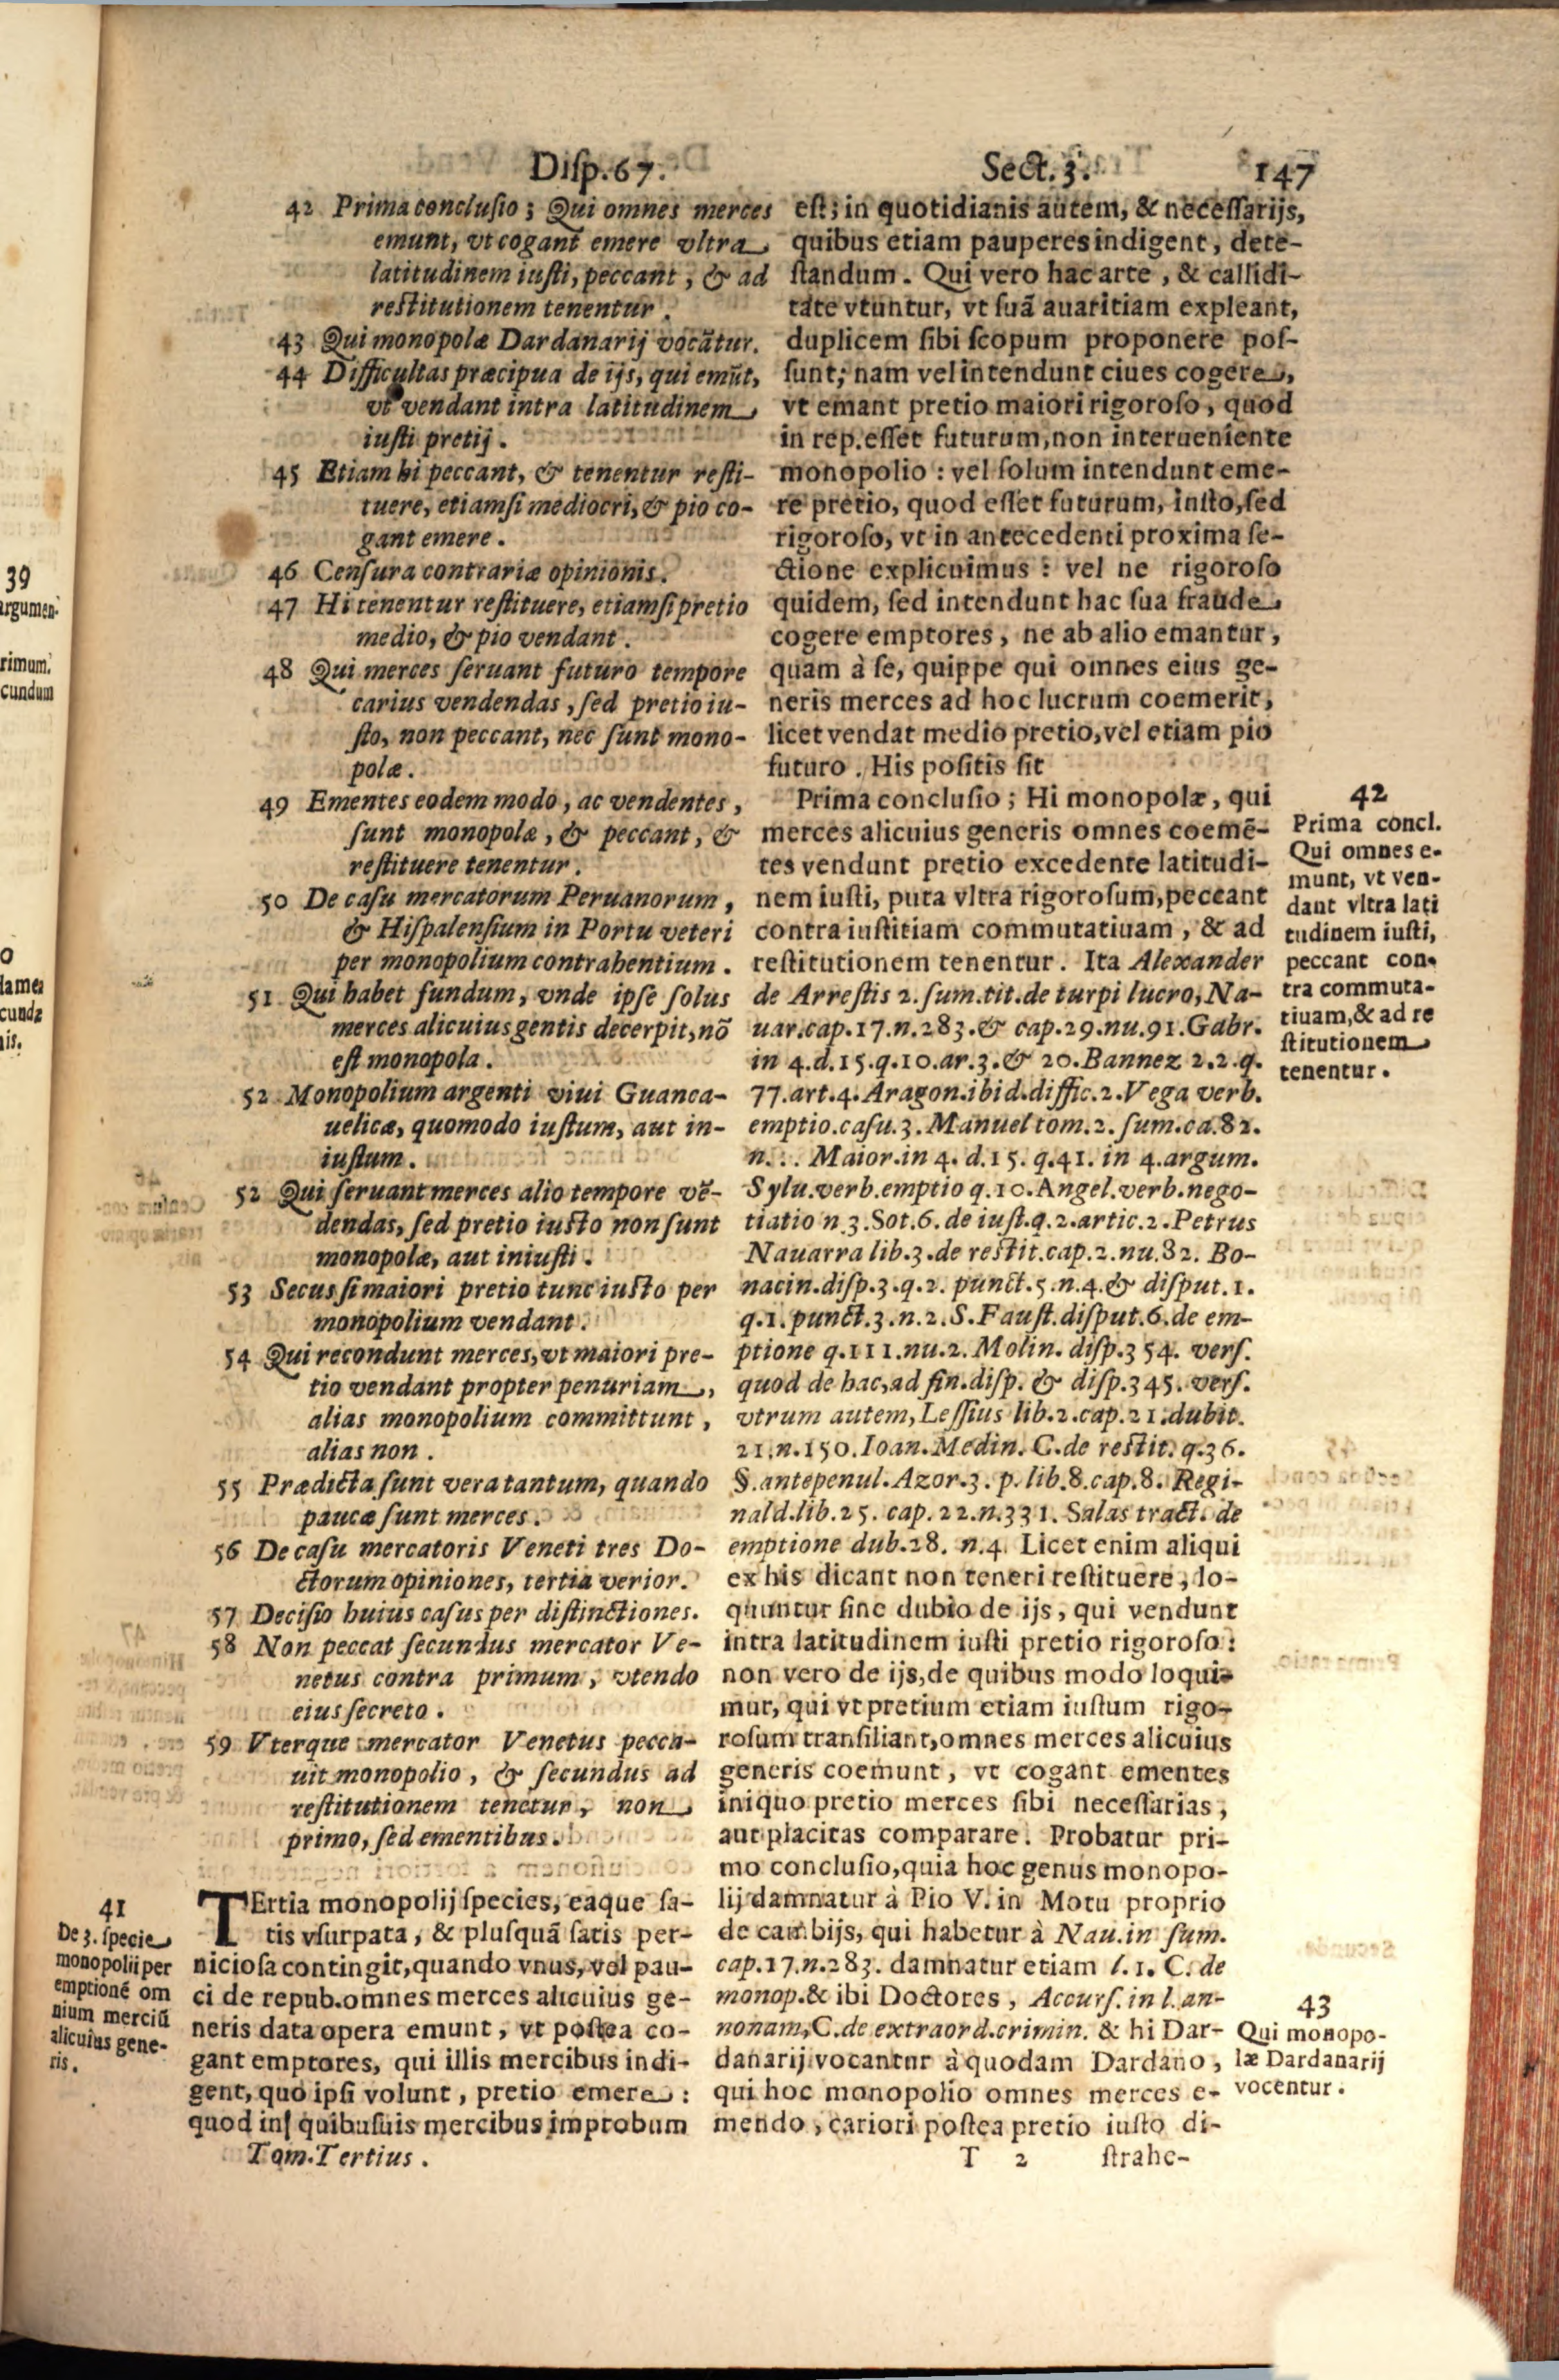 Disp.67. Sect.3. 147
42 Prima conclusio; Qui omnes merces
emunt, vt cogant emere vltra
latitudinem iusti, peccant, & ad
restitutionem tenentur.
43 Qui monopolæ Dardanarij vocãtur.
44 Difficultas præcipua de ijs, qui emũt,
vt vendant intra latitudinem
iusti pretij.
45 Etiam hi peccant, & tenentur resti-
tuere, etiamsi mediocri, & pio co-
gant emere.
46 Censura contrariæ opinionis.
47 Hi tenentur restituere, etiamsi pretio
medio, & pio vendant.
48 Qui merces seruant futuro tempore
carius vendendas, sed pretio iu-
sto, non peccant, nec sunt mono-
polæ.
49 Ementes eodem modo, ac vendentes,
sunt monopolæ, & peccant, &
restituere tenentur.
50 De casu mercatorum Peruanorum,
& Hispalensium in Portu veteri
per monopolium contrahentium.
51 Qui habet fundum, vnde ipse solus
merces alicuius gentis decerpit, nõ
est monopola.
52 Monopolium argenti viui Guanca-
uelicæ, quomodo iustum, aut in-
iustum.
52 Qui seruant merces alio tempore vẽ-
dendas, sed pretio iusto non sunt
monopolæ, aut iniusti.
53 Secus si maiori pretio tunc iusto per
monopolium vendant.
54 Qui recondunt merces, vt maiori pre-
tio vendant propter penuriam,
alias monopolium committunt,
alias non.
55 Prædicta sunt vera tantum, quando
paucæ sunt merces.
56 De casu mercatoris Veneti tres Do-
ctorum opiniones, tertia verior.
57 Decisio huius casus per distinctiones.
58 Non peccat secundus mercator Ve-
netus contra primum, vtendo
eius secreto.
59 Vterque mercator Venetus pecca-
uit monopolio, & secundus ad
restitutionem tenetur, non
primo, sed ementibus.
41
De 3. specie
monopolii per
emptionẽ om
nium merciũ
alicuius gene-
ris.
TErtia monopolij species, eaque sa-
tis vsurpata, & plusquã satis per-
niciosa contingit, quando vnus, vel pau-
ci de repub. omnes merces alicuius ge-
neris data opera emunt, vt postea co-
gant emptores, qui illis mercibus indi-
gent, quo ipsi volunt, pretio emere:
quod in quibusuis mercibus improbum
Tom. Tertius.
est; in quotidianis autem, & necessarijs,
quibus etiam pauperes indigent, dete-
standum. Qui vero hac arte, & callidi-
tate vtuntur, vt suã auaritiam expleant,
duplicem sibi scopum proponere pos-
sunt; nam vel intendunt ciues cogere,
vt emant pretio maiori rigoroso, quod
in rep. esset futurum, non interueniente
monopolio: vel solum intendunt eme-
re pretio, quod esset futurum, iusto, sed
rigoroso, vt in antecedenti proxima se-
ctione explicuimus: vel ne rigoroso
quidem, sed intendunt hac sua fraude
cogere emptores, ne ab alio emantur,
quam à se, quippe qui omnes eius ge-
neris merces ad hoc lucrum coemerit,
licet vendat medio pretio, vel etiam pio
futuro. His positis sit
Prima conclusio; Hi monopolæ, qui
merces alicuius generis omnes coemẽ-
tes vendunt pretio excedente latitudi-
nem iusti, puta vltra rigorosum, peccant
contra iustitiam commutatiuam, & ad
restitutionem tenentur. Ita Alexander
de Arrestis 2. sum. tit. de turpi lucro, Na-
uar. cap. 17. n. 283. & cap. 29. nu. 91. Gabr.
in 4. d. 15. q. 10. ar. 3. & 20. Bannez 2. 2. q.
77. art. 4. Aragon. ibid. diffic. 2. Vega verb.
emptio. casu. 3. Manuel tom. 2. sum. ca. 82.
n. Maior. in 4. d. 15. q. 41. in 4. argum.
Sylu. verb. emptio q. 10. Angel. verb. nego-
tiatio n. 3. Sot. 6. de iust. q. 2. artic. 2. Petrus
Nauarra lib. 3. de restit. cap. 2. nu. 82. Bo-
nacin. disp. 3. q. 2. punct. 5. n. 4. & disput. 1.
q. 1. punct. 3. n. 2. S. Faust. disput. 6. de em-
ptione q. 111. nu. 2. Molin. disp. 354. vers.
quod de hac, ad fin. disp. & disp. 345. vers.
vtrum autem, Lessius lib. 2. cap. 21. dubit.
21. n. 150. Ioan. Medin. C. de restit. q. 36.
§. antepenul. Azor. 3. p. lib. 8. cap. 8. Regi-
nald. lib. 25. cap. 22. n. 331. Salas tract. de
emptione dub. 28. n. 4. Licet enim aliqui
ex his dicant non teneri restituere, lo-
quuntur sine dubio de ijs, qui vendunt
intra latitudinem iusti pretio rigoroso:
non vero de ijs, de quibus modo loqui-
mur, qui vt pretium etiam iustum rigo-
rosum transiliant, omnes merces alicuius
generis coemunt, vt cogant ementes
iniquo pretio merces sibi necessarias,
aut placitas comparare. Probatur pri-
mo conclusio, quia hoc genus monopo-
lij damnatur à Pio V. in Motu proprio
de cambijs, qui habetur à Nau. in sum.
cap. 17. n. 283. damnatur etiam l. 1. C. de
monop. & ibi Doctores, Accurs. in l. an-
nonam, C. de extraord. crimin. & hi Dar-
danarij vocantur à quodam Dardano,
qui hoc monopolio omnes merces e-
mendo, cariori postea pretio iusto di-
T 2 strahe-
42
Prima concl.
Qui omnes e-
munt, vt ven-
dant vltra lati
tudinem iusti,
peccant con-
tra commuta-
tiuam, & ad re
stitutionem
tenentur.
43
Qui monopo-
læ Dardanarij
vocentur.
39